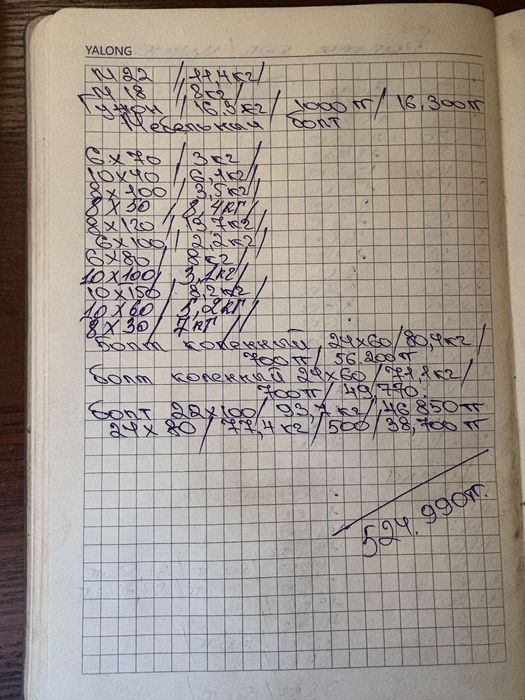 YALONG
М 22 / 11,4 кг/
М 18 / 8 кг/
Гужон / 16,3 кг/ 1000 тг / 16,300 тг
Мебельний болт
6 х 70 / 3 кг /
10 х 40 / 6,1 кг/
8 х 100 / 3,5 кг/
8 х 50 / 3,4 кг
8 х 120 / 3,7 кг/
6 х 100 / 2,2 кг/
6 х 80 / 8 кг /
10 х 100 / 3,1 кг/
10 х 150 / 8,2 кг
10 х 60 / 5,2 кг/
8 х 30 / 7 кг /
болт коленный 24х60 /80,4 кг/
700 тг/ 56 200 тг
болт каленный 24х60 /71,1 кг/
700 тг / 49,770
болт 22х100/ 93,7 кг/ 46 850 тг
24 х 80 / 77,4 кг / 500 / 38,700 тг
524.990 тг.